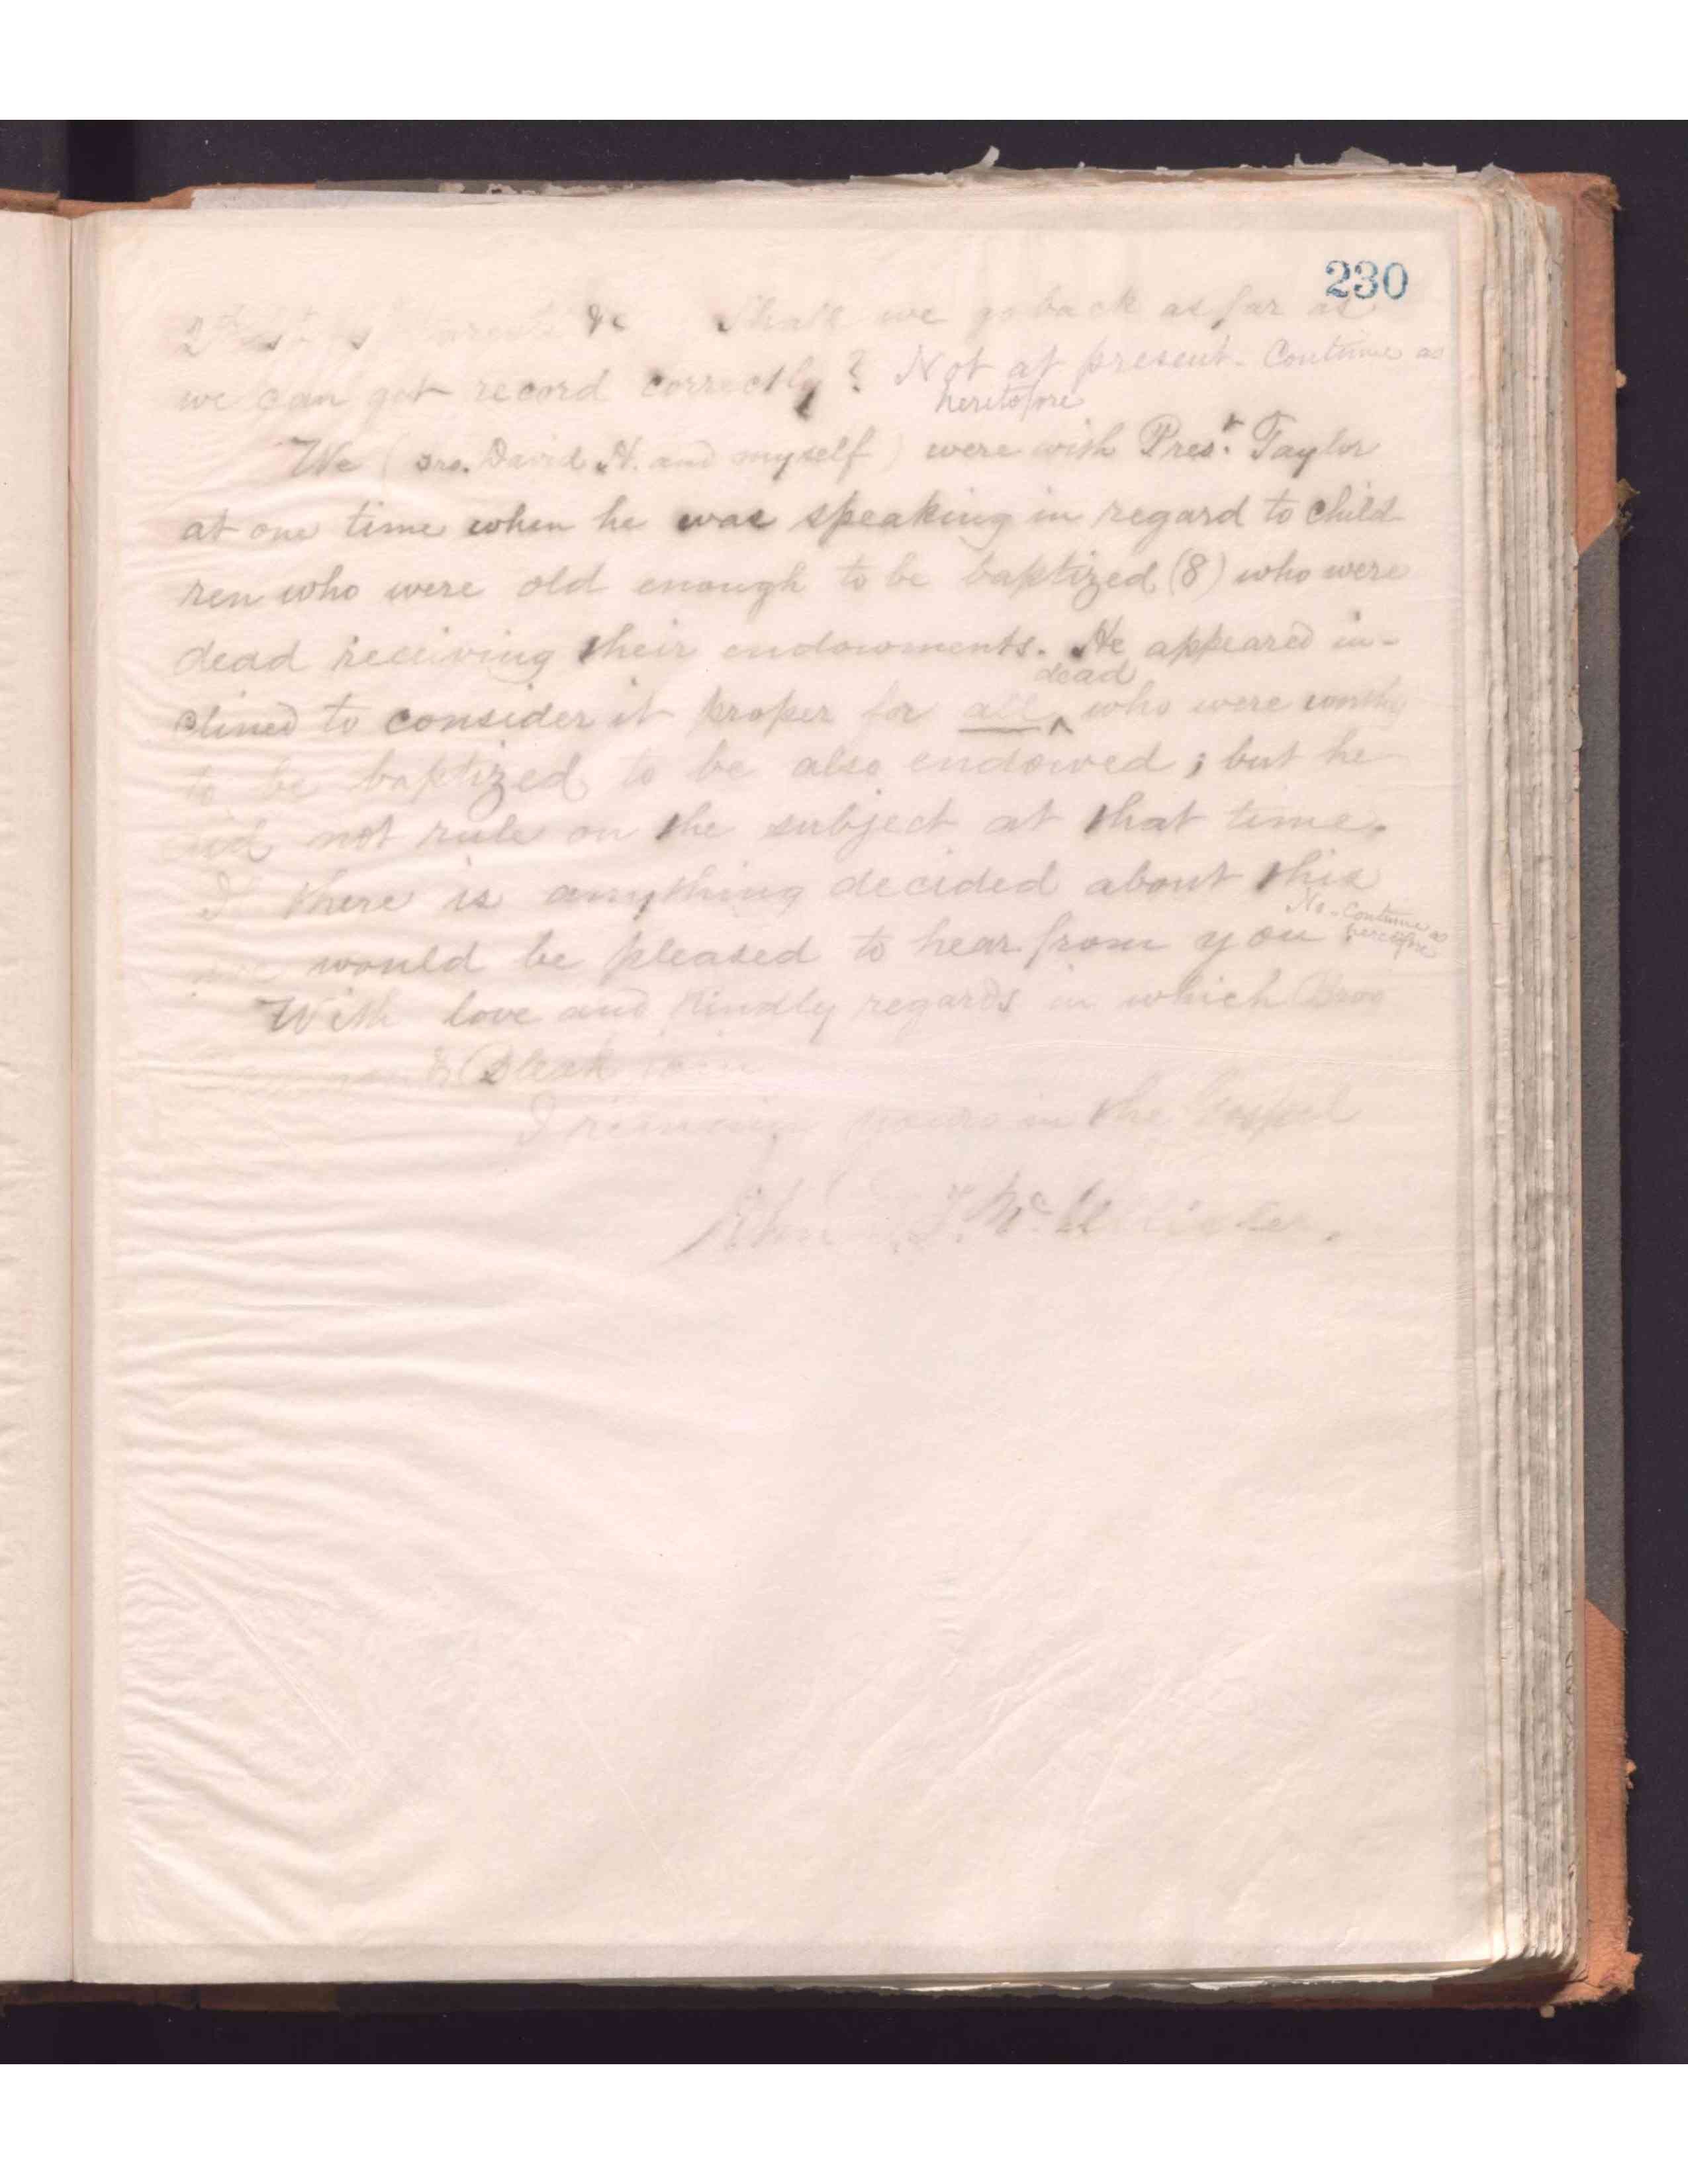 230
& Shall we go back as far as
we can get record correctly? Not at present. Continue as
heretofore
We (Bro. David H. and myself) were with Presᵗ. Taylor
at one time when he was speaking in regard to child-
ren who were old enough to be baptized (8) who were
dead receiving their endowments. He appeared in-
dead
clined to consider it proper for all ^ who were worthy
to be baptized to be also endowed; but he
did not rule on the subject at that time.
If there is anything decided about this
No - Continue as
heretofore
we would be pleased to hear from you.
With love and kindly regards in which Bros
& Bleak join
I remain yours in the Gospel
John D. T. McAllister.